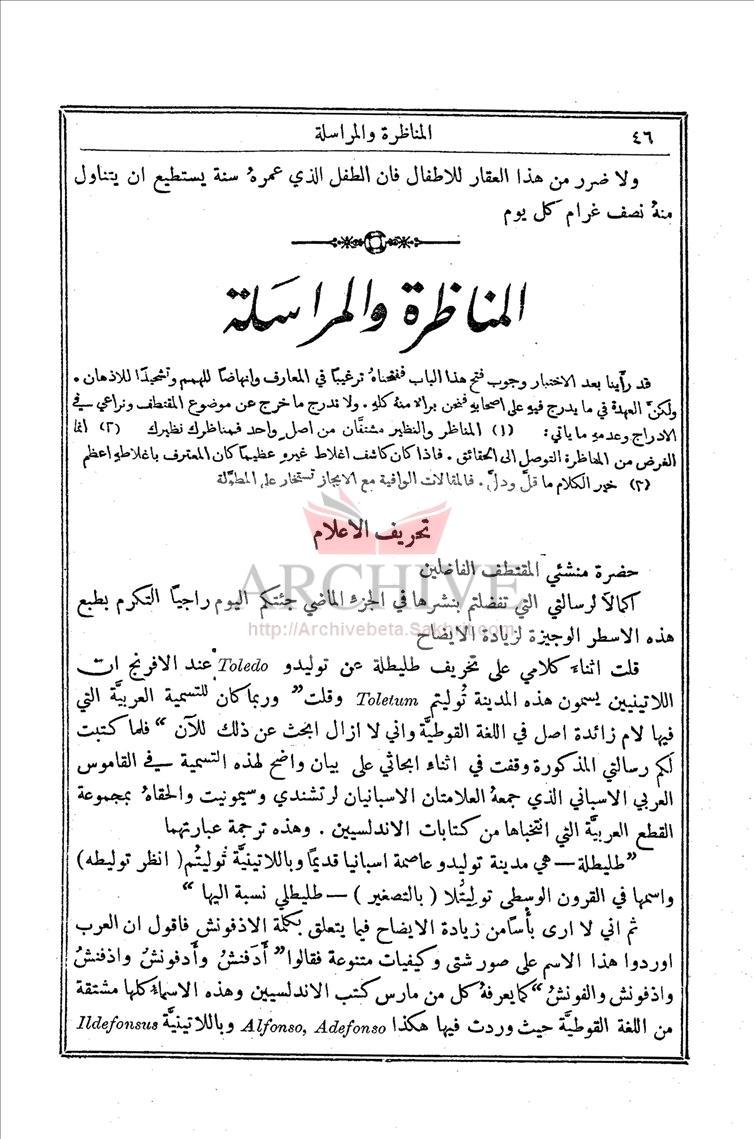 المناظرة والمراسلة ٤٦
ولا ضرر من هذا العقار للاطفال فان الطفل الذي عمرهُ سنة يستطيع ان يتناول
منهُ نصف غرام كل يوم
المناظرة والمراسلة
قد رأينا بعد الاختبار وجوب فتح هذا الباب ففتحناهُ ترغيبًا في المعارف وانهاضًا للهمم وتشحيذًا للاذهان.
ولكنَّ العهدة في ما يدرج فيهِ على اصحابهِ فنحن برالا منهُ كلهِ. ولا ندرج ما خرج عن موضوع المقتطف ونراعي في
الادراج وعدمهِ ما ياتي: (١) المناظر والنظير مشتقَّان من اصل واحد فمناظرك نظيرك (٢) انما
الغرض من المناظرة التوصل الى الحقائق. فاذا كان كاشف اغلاط غيرهِ عظيمًا كان المعترف باغلاطهِ اعظم
(٢) خير الكلام ما قلَّ ودلَّ. فالمقالات الوافية مع الايجاز تستخار على المطوَّلة
تحريف الاعلام
حضرة منشئي المقتطف الفاضلين
اكمالاً لرسالتي التي تفضلتم بنشرها في الجزء الماضي جئتكم اليوم راجيًا التكرم بطبع
هذه الاسطر الوجيزة لزيادة الايضاح
قلت اثناء كلامي على تحريف طليطلة عن توليدو Toledo عند الافرنج ان
اللاتينيين يسمون هذه المدينة تُوليتم Toletum وقلت " وربما كان للتسمية العربيَّة التي
فيها لام زائدة اصل في اللغة القوطيَّة واني لا ازال ابحث عن ذلك للآن " فلما كتبت
لكم رسالتي المذكورة وقفت في اثناء ابحاثي على بيان واضح لهذه التسمية في القاموس
العربي الاسباني الذي جمعهُ العلامتان الاسبانيان لرتشندي وسيمونيت والحقاهُ بمجموعة
القطع العربيَّة التي انتخباها من كتابات الاندلسيين. وهذه ترجمة عبارتهما
"طليطلة — هي مدينة توليدو عاصمة اسبانيا قديمًا وباللاتينيَّة تُوليتُم (انظر توليطه)
واسمها في القرون الوسطى توليتُلا (بالتصغير) — طليطلي نسبة اليها "
ثم اني لا ارى بأسًا من زيادة الايضاح فيما يتعلق بكلمة الاذفونش فاقول ان العرب
اوردوا هذا الاسم على صور شتى وكيفيات متنوعة فقالوا " أَدَفنشُ وأَدفونشُ واذفنشُ
واذفونش والفونشُ " كما يعرفهُ كل من مارس كتب الاندلسيين وهذه الاسماءُ كلها مشتقة
من اللغة القوطيَّة حيث وردت فيها هكذا Alfonso, Adefonso وباللاتينيَّة Ildefonsus
ARCHIVE
http://Archivebeta.Sakhrit.com